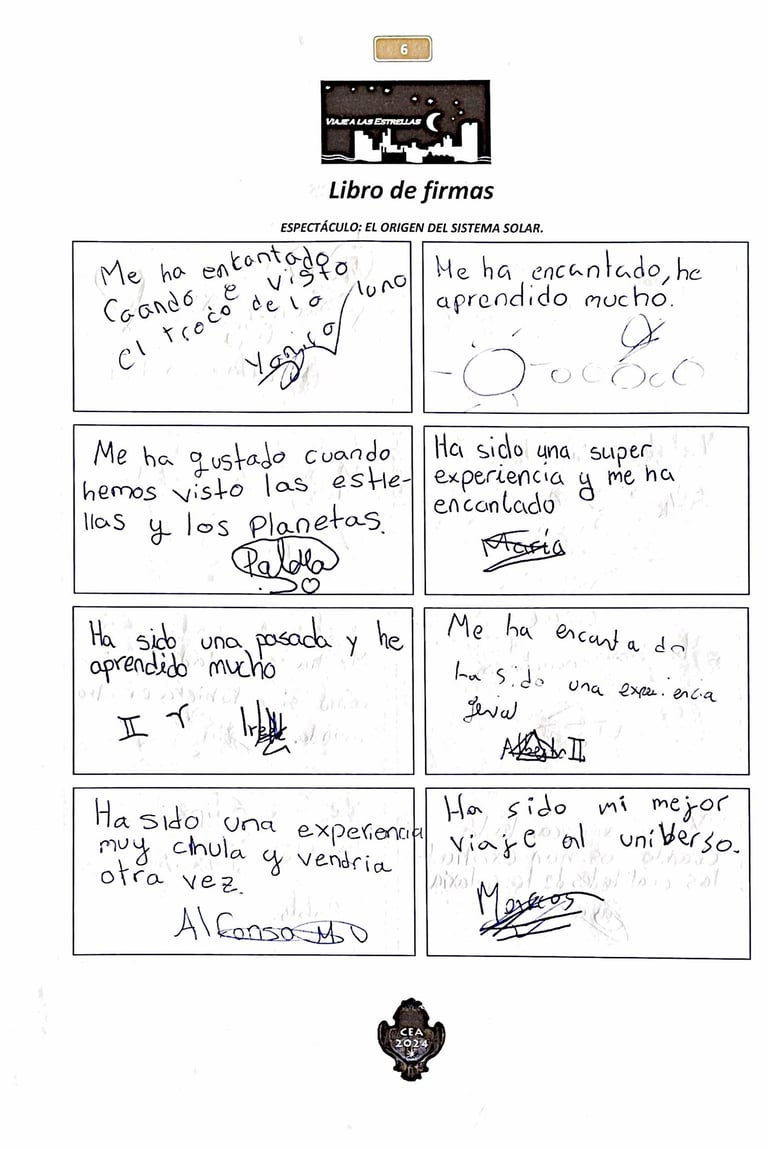 6
VIAJE A LAS ESTRELLAS
Libro de firmas
ESPECTÁCULO: EL ORIGEN DEL SISTEMA SOLAR.
Me ha enkantado
Cuando e visto
el troco de la luna
Me ha encantado, he
aprendido mucho.
Me ha gustado cuando
hemos visto las estre-
llas y los Planetas.
Ha sido una super
experiencia y me ha
encantado
María
Ha sido una pasada y he
aprendido mucho
II
Irene
Me ha encantado
ha sido una experiencia
genial
Alberto II
Ha sido una experiencia
muy chula y vendria
otra vez.
Alfonso M
Ha sido mi mejor
viaje al uniberso.
Marcos
CEA
2024